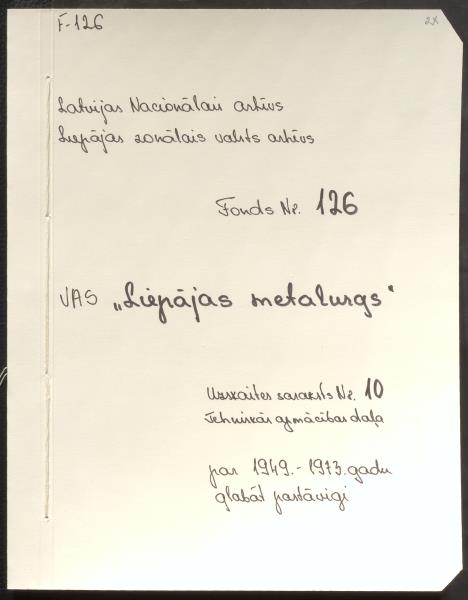 F-126
2x
Latvijas Nacionālais arhīvs
Liepājas zonālais valsts arhīvs
Fonds Nr. 126
VAS „Liepājas metalurgs"
Uzskaites saraksts Nr. 10
Tehniskās apmācības daļa
par 1949.-1973.gadu
glabāt pastāvīgi